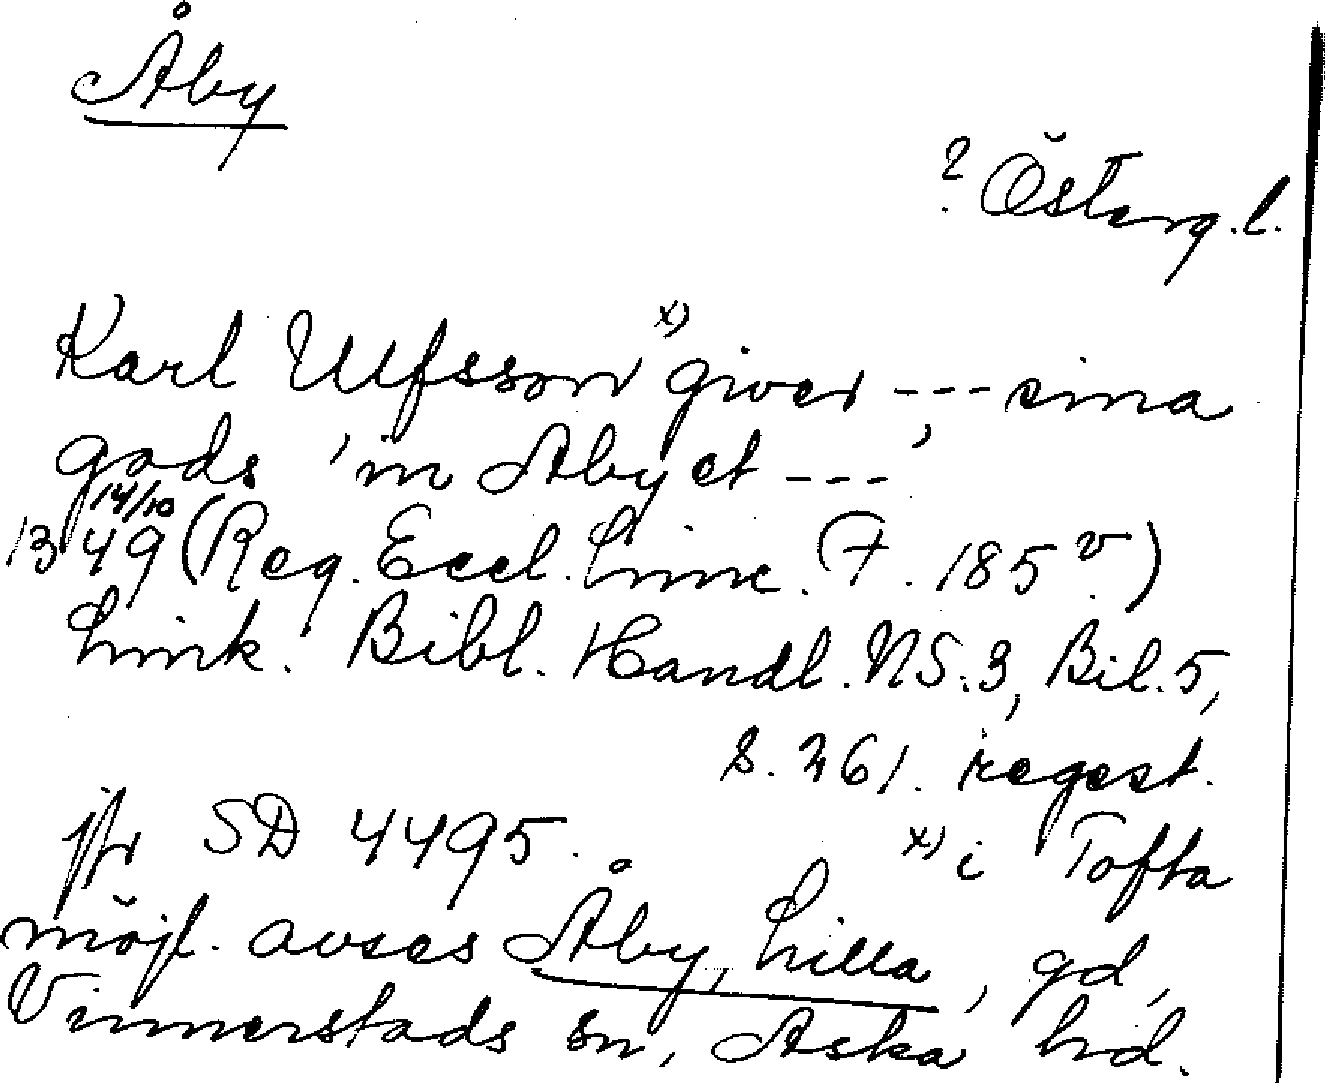 Åby
? Österg.l.
Karl Ulfsson x) giver ---, sina
gods 'in Aby et ---'
14/10
1349 (Reg. Eccl. Linc. F. 185 v.)
Link. Bibl. Handl. NS. 3, Bil. 5,
s. 261. regest.
jfr SD 4495. x) i Tofta
möjl. avses Åby, Lilla, gd,
Vinnerstads sn, Aska hd.